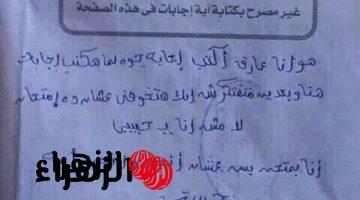 غير مصرح بكتابة أية إجابات في هذه الصفحة
هو أنا عارف أكتب إجابة جوه لما هكتب إجابات
هنا وبعدين متفتكرش إنك هتخوفني عشان ده إمتحان
لا مش أنا يا حبيبي
أنا بمتحن بس عشان
الزهراء